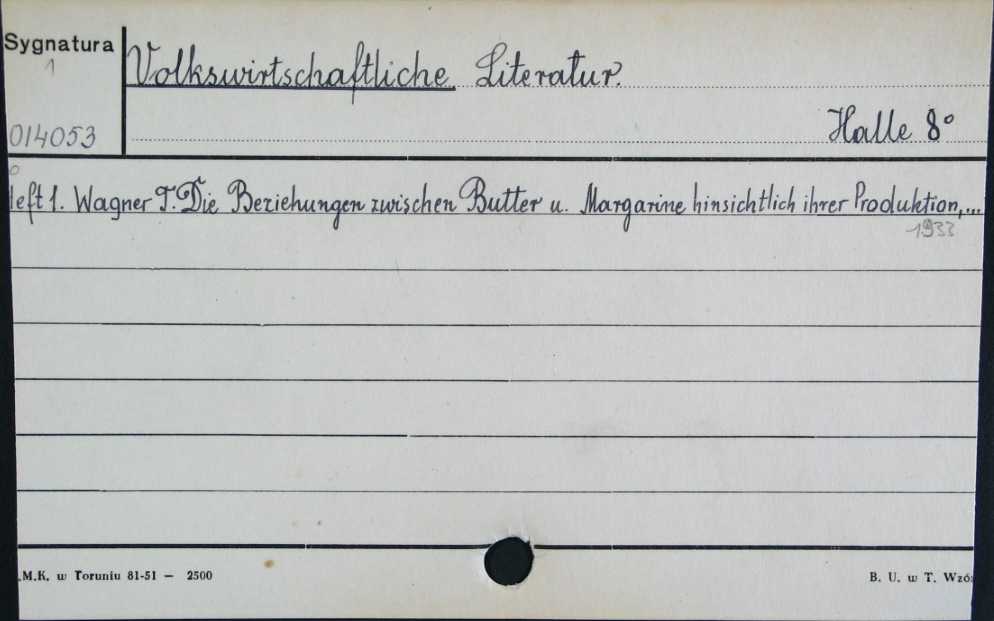 Sygnatura
1
Volkswirtschaftliche Literatur.
014053
Halle 8°
Heft 1. Wagner T. Die Beziehungen zwischen Butter u. Margarine hinsichtlich ihrer Produktion,...
1933
.M.K. w Toruniu 81-51 — 2500
B. U. w T. Wzó